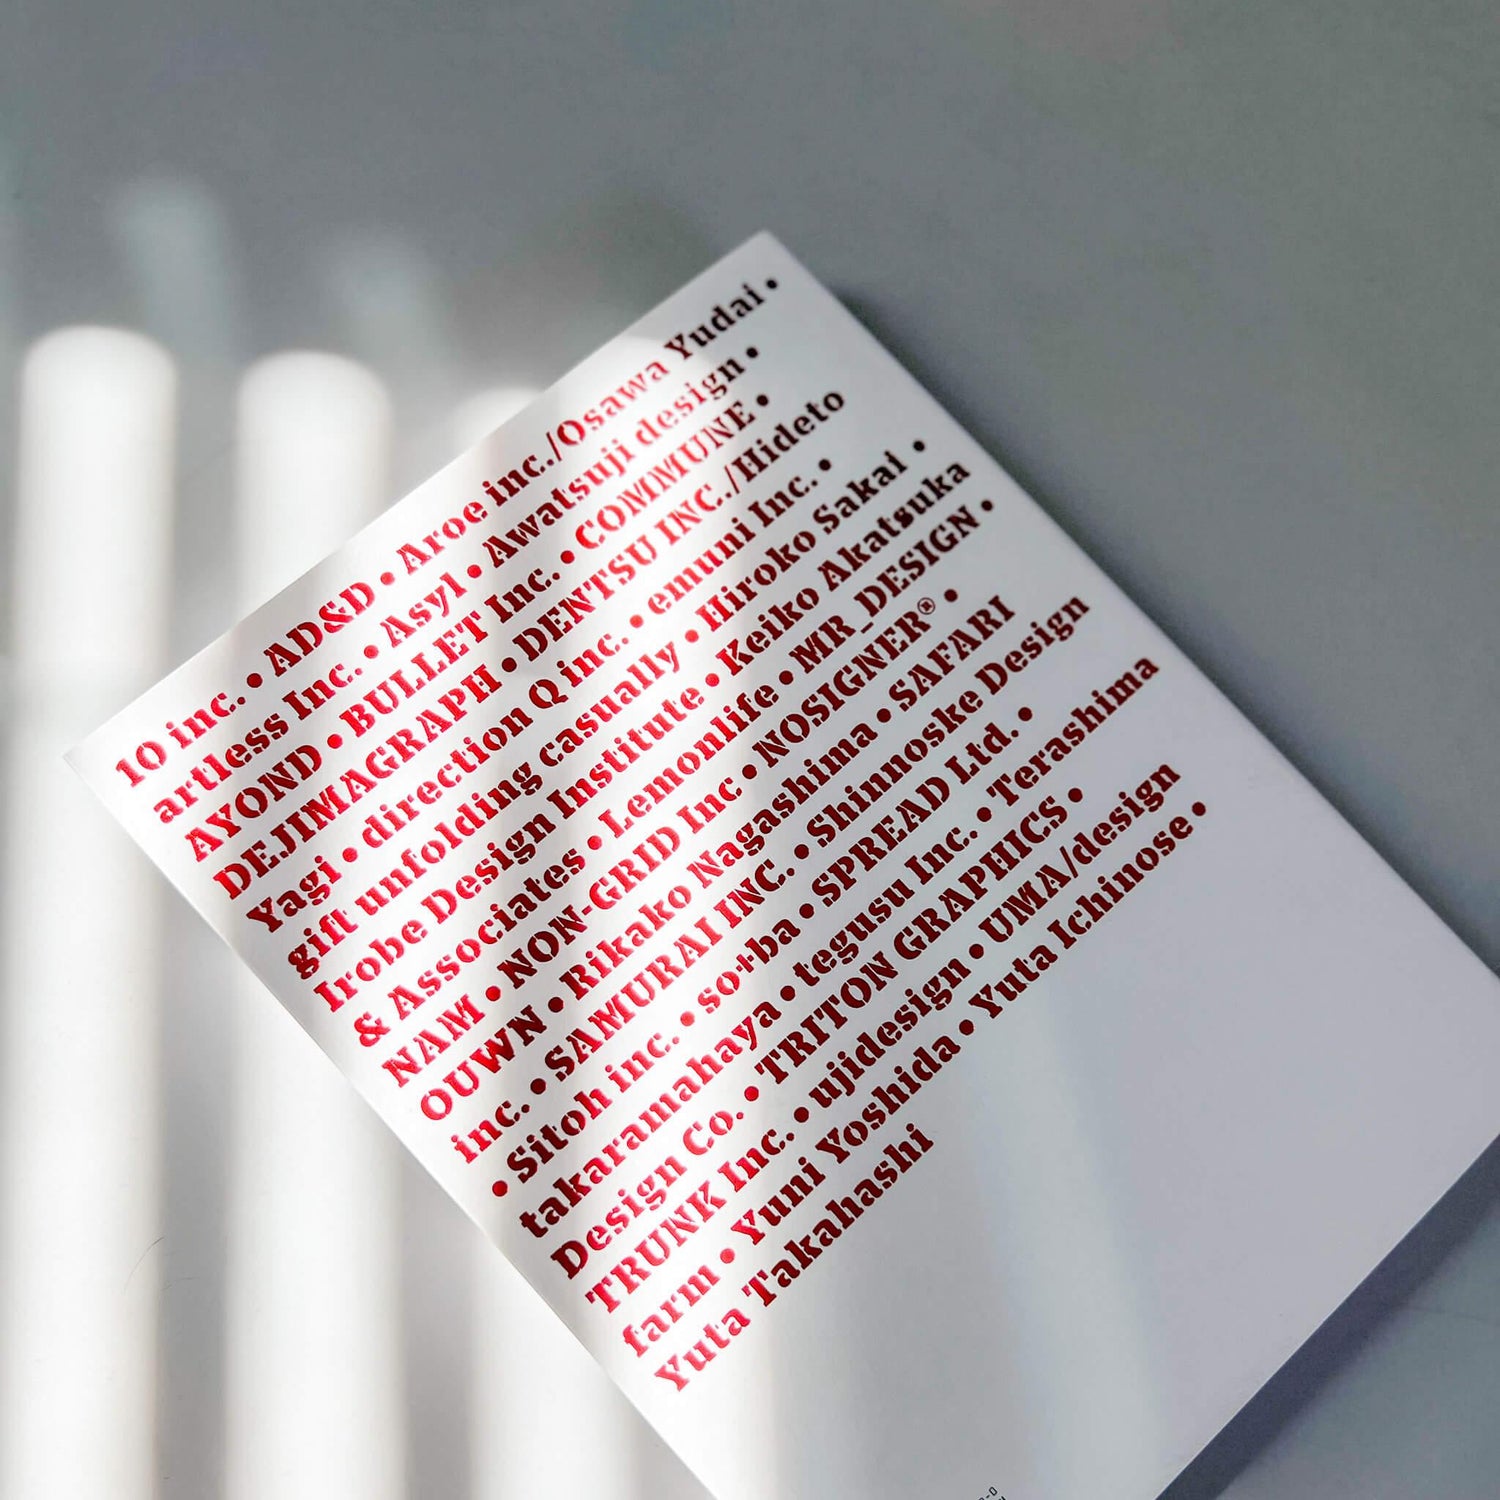 10 inc. • AD&D • Aroe inc./Osawa Yudai •
artless Inc. • Asyl • Awatsuji design •
AYOND • BULLET Inc. • COMMUNE •
DEJIMAGRAPH • DENTSU INC./Hideto
Yagi • direction Q inc. • emuni Inc. •
gift unfolding casually • Hiroko Sakai •
Irobe Design Institute • Keiko Akatsuka
& Associates • Lemonlife • MR_DESIGN •
NAM • NON-GRID Inc • NOSIGNER® •
OUWN • Rikako Nagashima • SAFARI
inc. • SAMURAI INC. • Shinnoske Design
• Sitoh inc. • so+ba • SPREAD Ltd. •
takaramahaya • tegusu Inc. • Terashima
Design Co. • TRITON GRAPHICS •
TRUNK Inc. • ujidesign • UMA/design
farm • Yuni Yoshida • Yuta Ichinose •
Yuta Takahashi